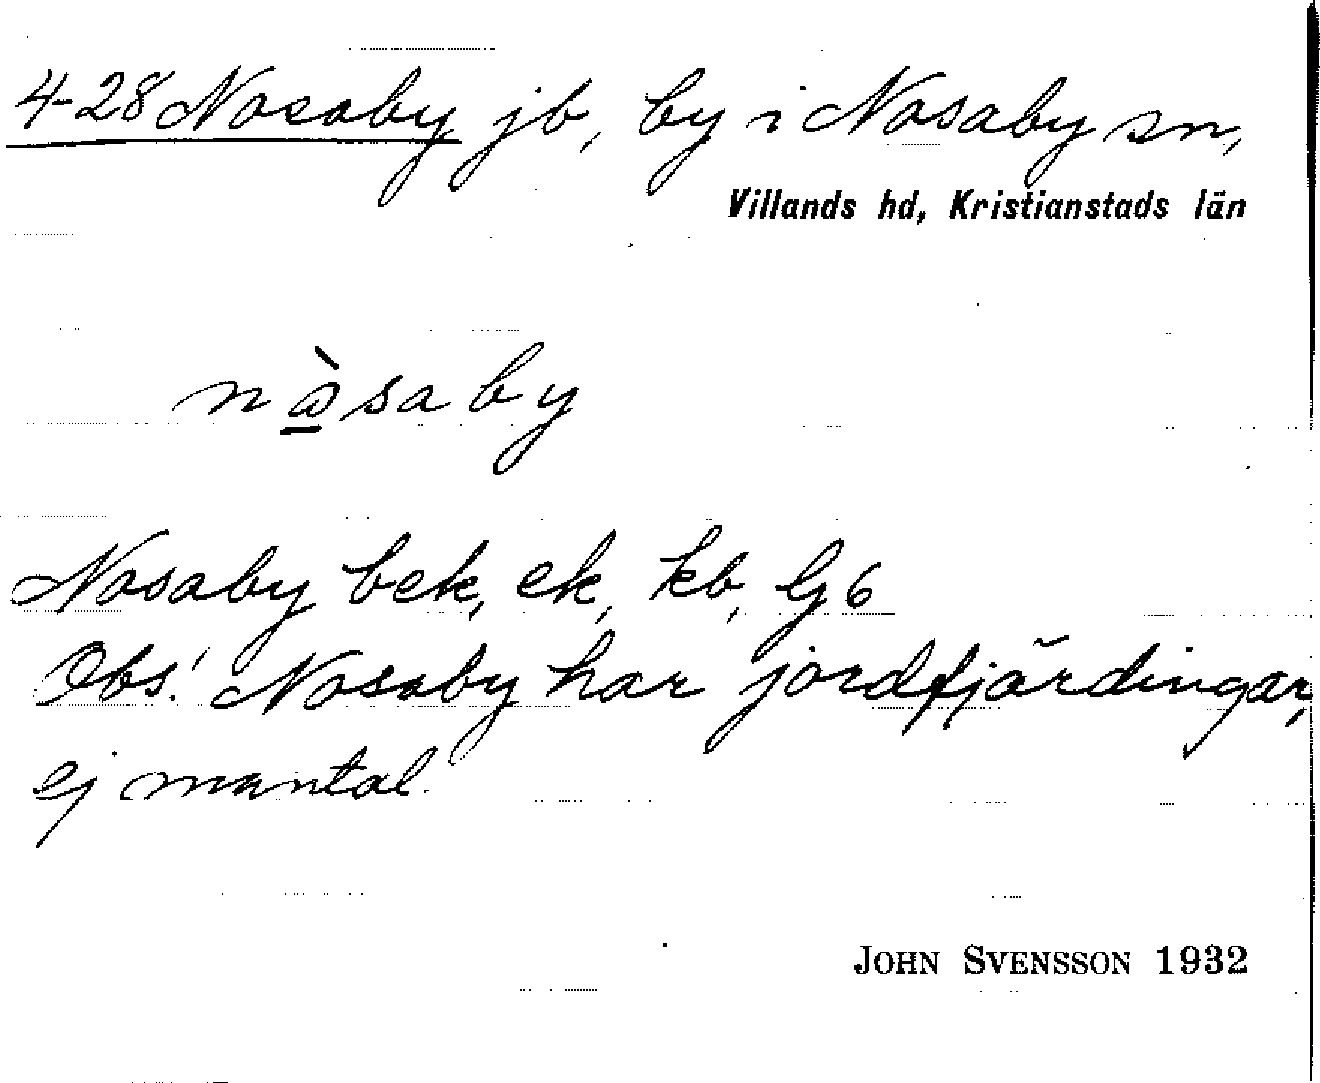 4-28 Nosaby jb, by i Nosaby sn,
Villands hd, Kristianstads län
nò̱saby
Nosaby bek, ek, kb, Gj 6
Obs! Nosaby har jordfjärdingar,
ej mantal.
JOHN SVENSSON 1932